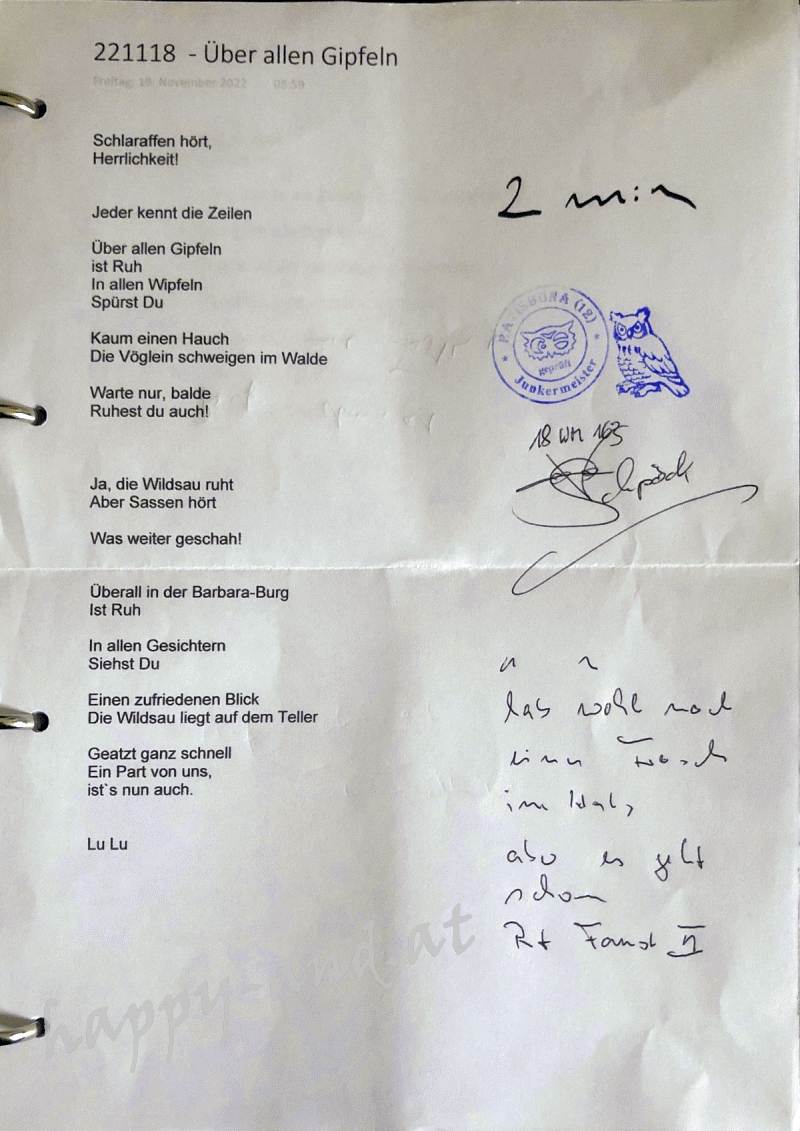 221118 - Über allen Gipfeln
Freitag, 18. November 2022 08:59
Schlaraffen hört,
Herrlichkeit!
Jeder kennt die Zeilen
Über allen Gipfeln
ist Ruh
In allen Wipfeln
Spürst Du
Kaum einen Hauch
Die Vöglein schweigen im Walde
Warte nur, balde
Ruhest du auch!
Ja, die Wildsau ruht
Aber Sassen hört
Was weiter geschah!
Überall in der Barbara-Burg
Ist Ruh
In allen Gesichtern
Siehst Du
Einen zufriedenen Blick
Die Wildsau liegt auf dem Teller
Geatzt ganz schnell
Ein Part von uns,
ist`s nun auch.
Lu Lu
2 min
RATISBONA (12)
geprüft
Junkermeister
18 WM 163
hab wohl noch
einen Frosch
im Hals,
aber es geht
schon
Rt Faust II
happy-und.at